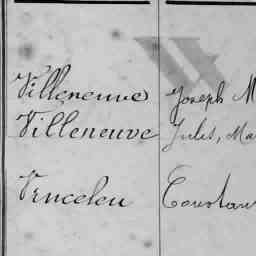 Villeneuve Joseph M
Villeneuve Jules, Ma
Vinceleu Constan